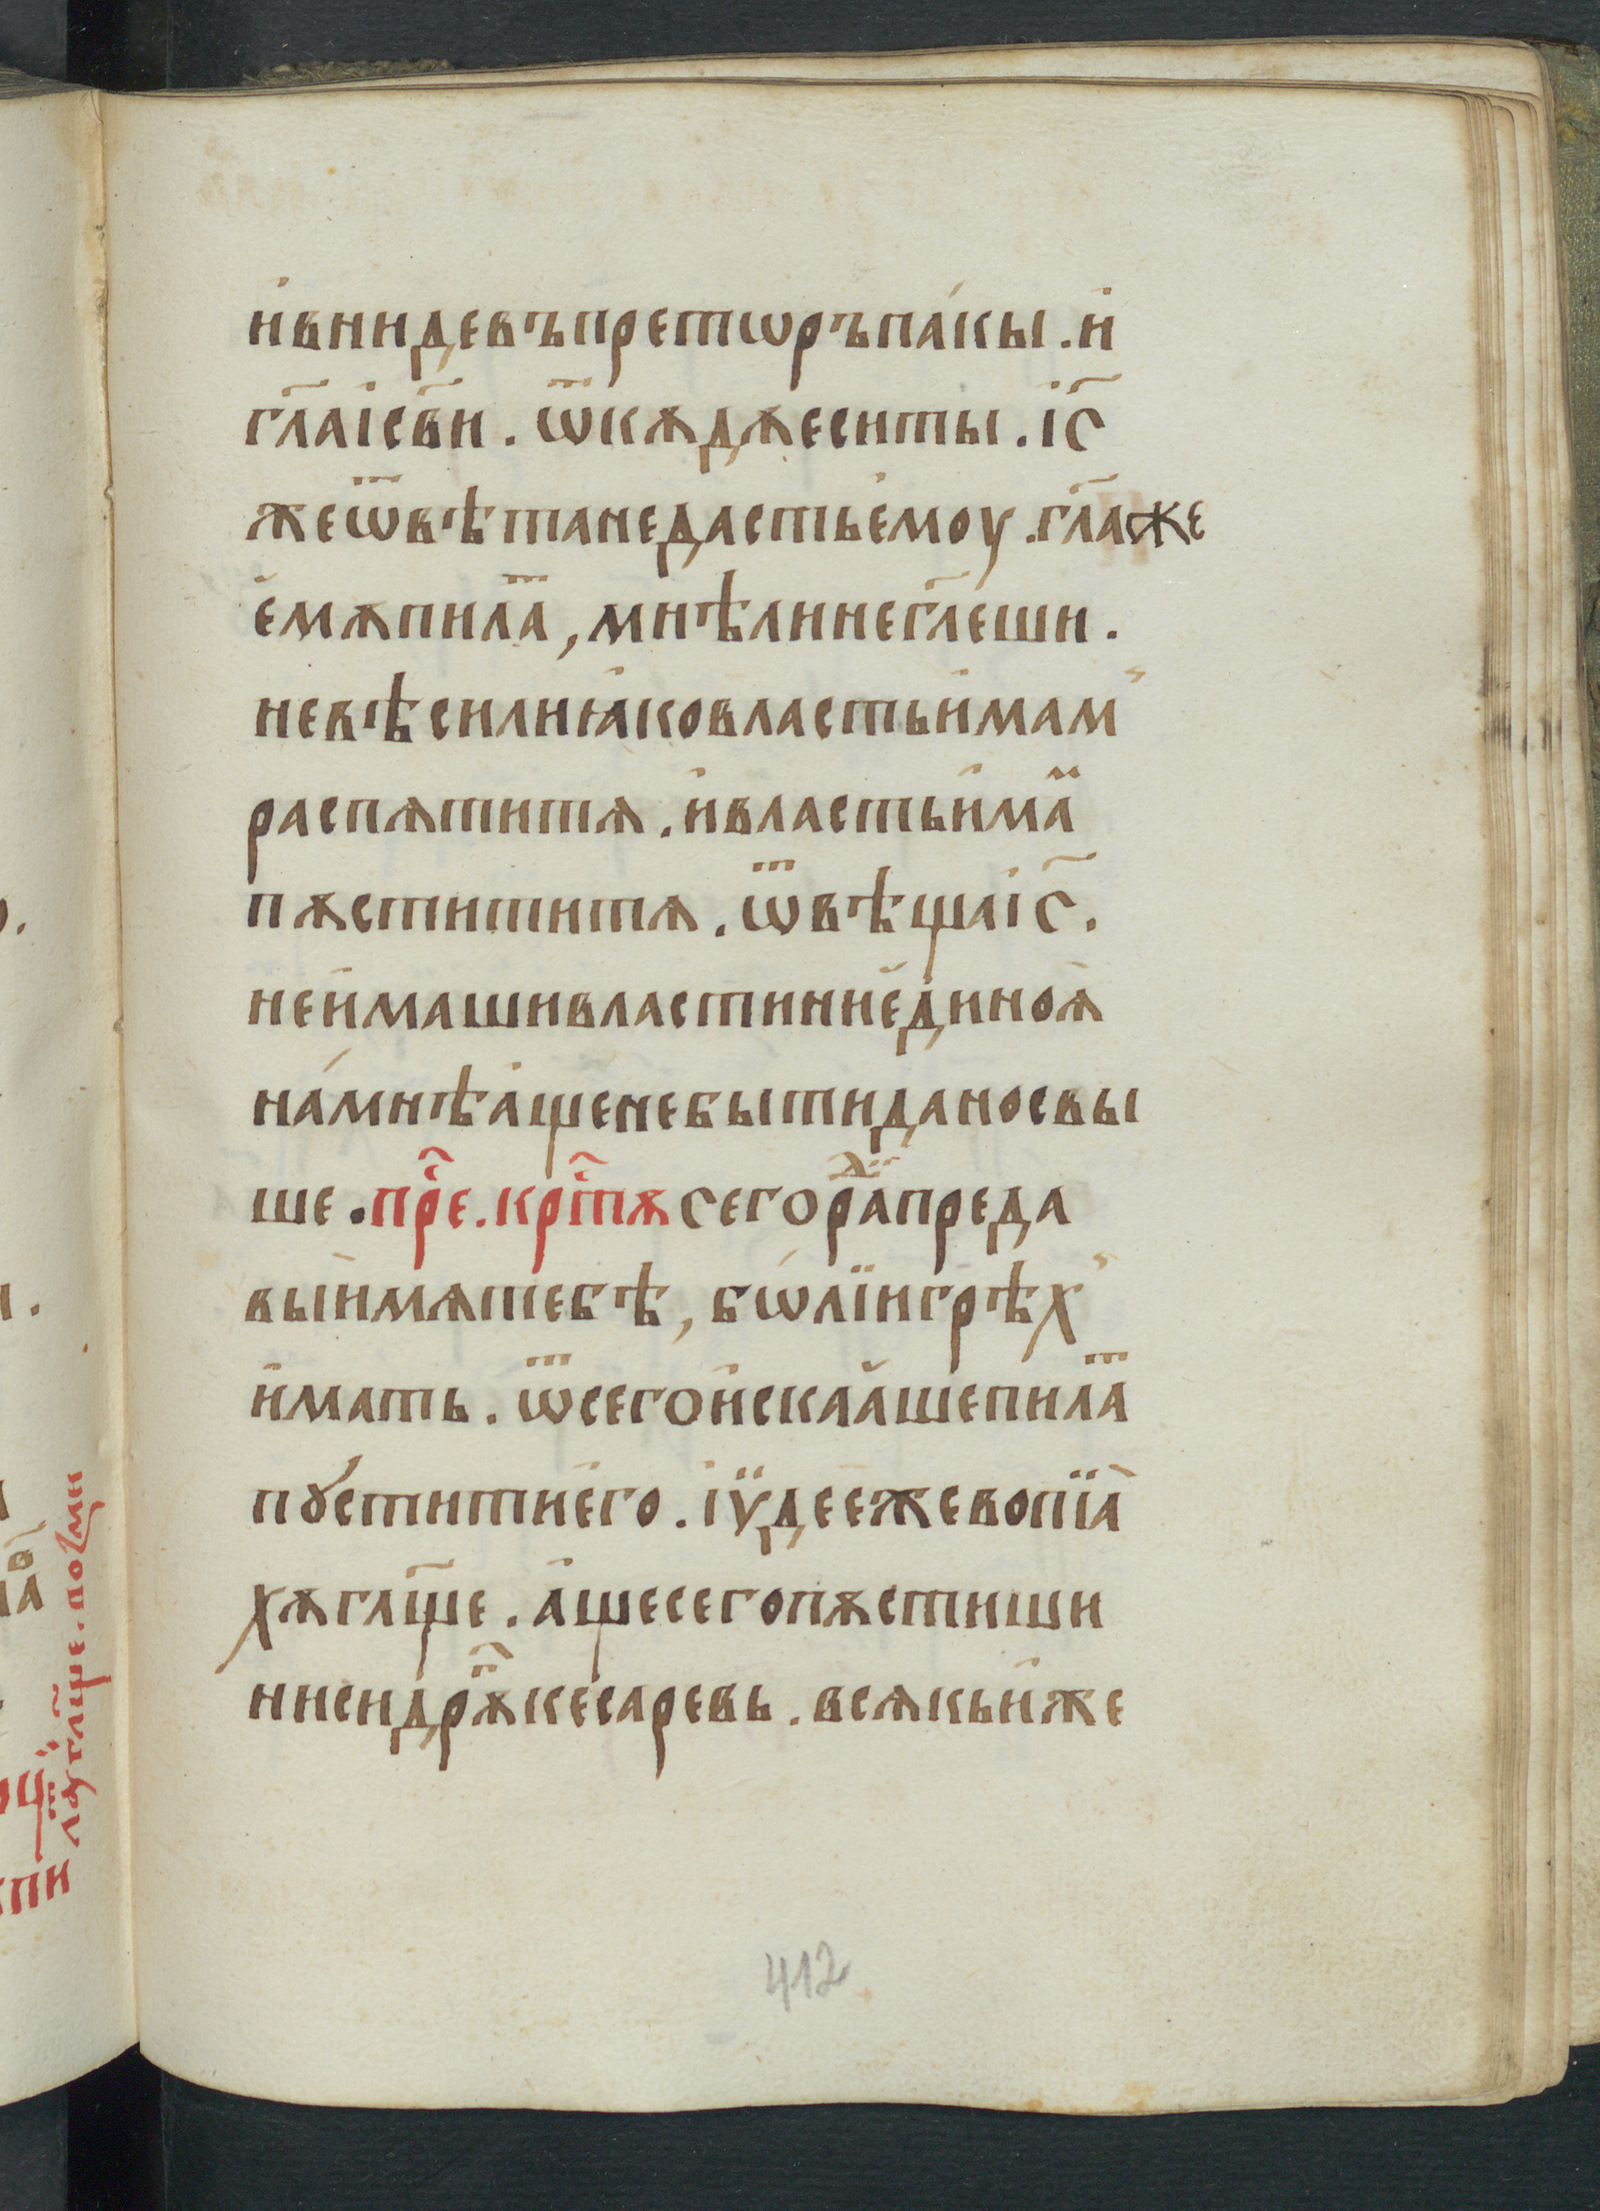 и҆вниидевъпретѡръпа́кы . и҆
гл҃аі҆св҃и . ѿкѫдѫеситы . і҆с҃
жеѿвѣтанедастье҆моу . гл҃аже
е҆мѫпилаⷮ , мнѣлинегл҃е́ши .
невѣсилиꙗ҆ковластьи҆мам̾
распѧтитѧ . и҆властьи҆маⷨ
пѫститити́тѧ . ѿвѣщаі҆с҃ .
неи҆машивластиние҆диноѧ҆
на́мнѣа҆щенебытиданосвы
ше . прⷭ҇е . крⷭ҇тѫ сегораⷣпреда
выи҆мѧтебѣ , бѡ́лїигрѣх̾
и҆мать . ѿсегои҆скаа҆шепилаⷮ
пꙋститие҆го . і҆ꙋдеежевопїа҆
хѫгл҃ще . а҆щесегопѫстиши
нисидрꙋⷢ҇кесаревь . всѧкьи҆же
412